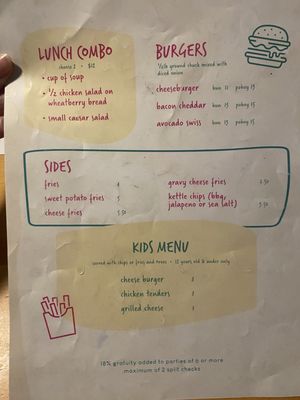 LUNCH COMBO
choose 2 • $12
• cup of soup
• 1/2 chicken salad on
wheatberry bread
• small caesar salad
BURGERS
1/2lb ground chuck mixed with
diced onion
cheeseburger bun 12 patmy 15
bacon cheddar bun 13 15
avocado swiss bun 13 15
SIDES
fries 4
sweet potato fries 5
cheese fries 5.50
gravy cheese fries 7.50
kettle chips (bbq,
jalapeno or sea salt) 3.50
KIDS MENU
served with chips or fries and freeze • 12 years old & under only
cheese burger 8
chicken tenders
grilled cheese
18% gratuity added to parties of 6 or more
maximum of 2 split checks